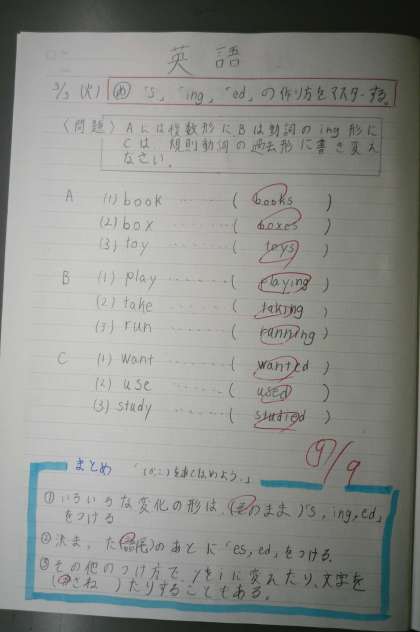 英語
3/3 (火) め 's, 'ing, 'ed, の作り方をマスターする。
〈問題〉Aには複数形に、Bは動詞のing形に
Cは、規則動詞の過去形に書き変え
なさい。
A (1) book ……… ( books )
(2) box ……… ( boxes )
(3) toy ……… ( toys )
B (1) play ……… ( playing )
(2) take ……… ( taking )
(3) run ……… ( running )
C (1) want ……… ( wanted )
(2) use ……… ( used )
(3) study ……… ( studied )
9/9
まとめ 「( )をあてはめよう。」
①いろいろな変化の形は、(そのまま)'s, ing, ed,
をつける
②決まった(語尾)のあとに「es, ed」をつける。
③その他のつけ方で、yをiに変えたり、文字を
(かさね)たりすることもある。